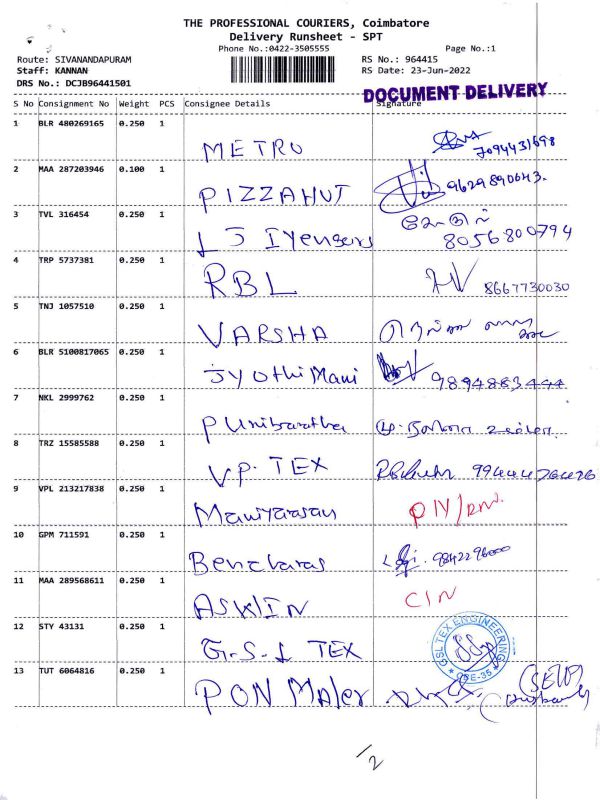 THE PROFESSIONAL COURIERS, Coimbatore
Delivery Runsheet - SPT
Phone No.:0422-3505555 Page No.:1
Route: SIVANANDAPURAM RS No.: 964415
Staff: KANNAN RS Date: 23-Jun-2022
DRS No.: DCJB96441501
DOCUMENT DELIVERY
S No Consignment No Weight PCS Consignee Details Signature
1 BLR 480269165 0.250 1 METRO 7094431698
2 MAA 287203946 0.100 1 PIZZAHUT 9629890643.
3 TVL 316454 0.250 1 L J Iyengers 8056800794
4 TRP 5737381 0.250 1 RBL 8667730030
5 TNJ 1057510 0.250 1 VARSHA
6 BLR 5100817065 0.250 1 JyothiMani 9894883444.
7 NKL 2999762 0.250 1
8 TRZ 15585588 0.250 1 VP. TEX 9944476476
9 VPL 213217838 0.250 1 Maniyarasan
10 GPM 711591 0.250 1 9842296000
11 MAA 289568611 0.250 1 ASWIN
12 STY 43131 0.250 1 G.S.L TEX GSL TEX ENGINEERING CBE-35
13 TUT 6064816 0.250 1 PON
1/2